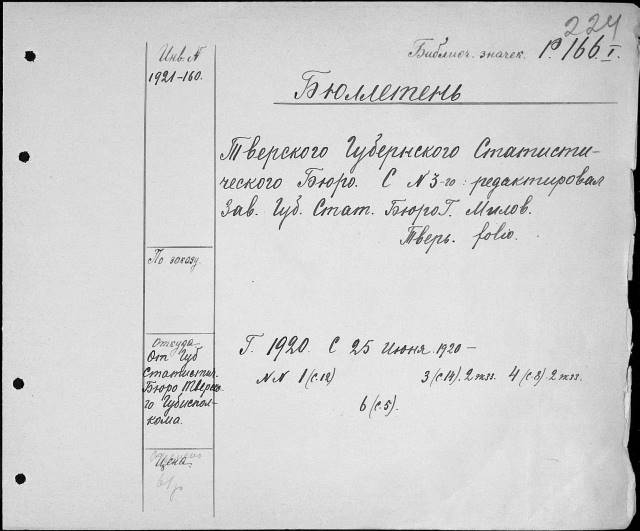 224
Библиоч. значек. Р. 166.I.
Инв. N
1921-160.
Бюллетень
Тверского Губернского Статисти-
ческого Бюро. С N 3-го: редактировал
Зав. Губ. Стат. Бюро Г. Милов.
Тверь. folio.
По заказу.
Откуда
От Губ
Статистич.
Бюро Тверско-
го Губиспол-
кома.
Г. 1920. С 25 Июня 1920 —
NN 1 (с.12) 3 (с.14). 2 экз. 4 (с.8). 2 экз.
6 (с.5).
Цена